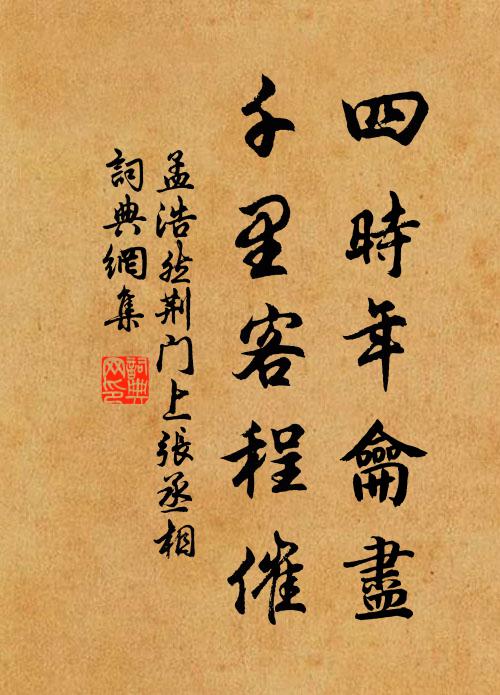 四時年龠盡
千里客程催
孟浩然荆门上張丞相
詞典網集
詞典
网印